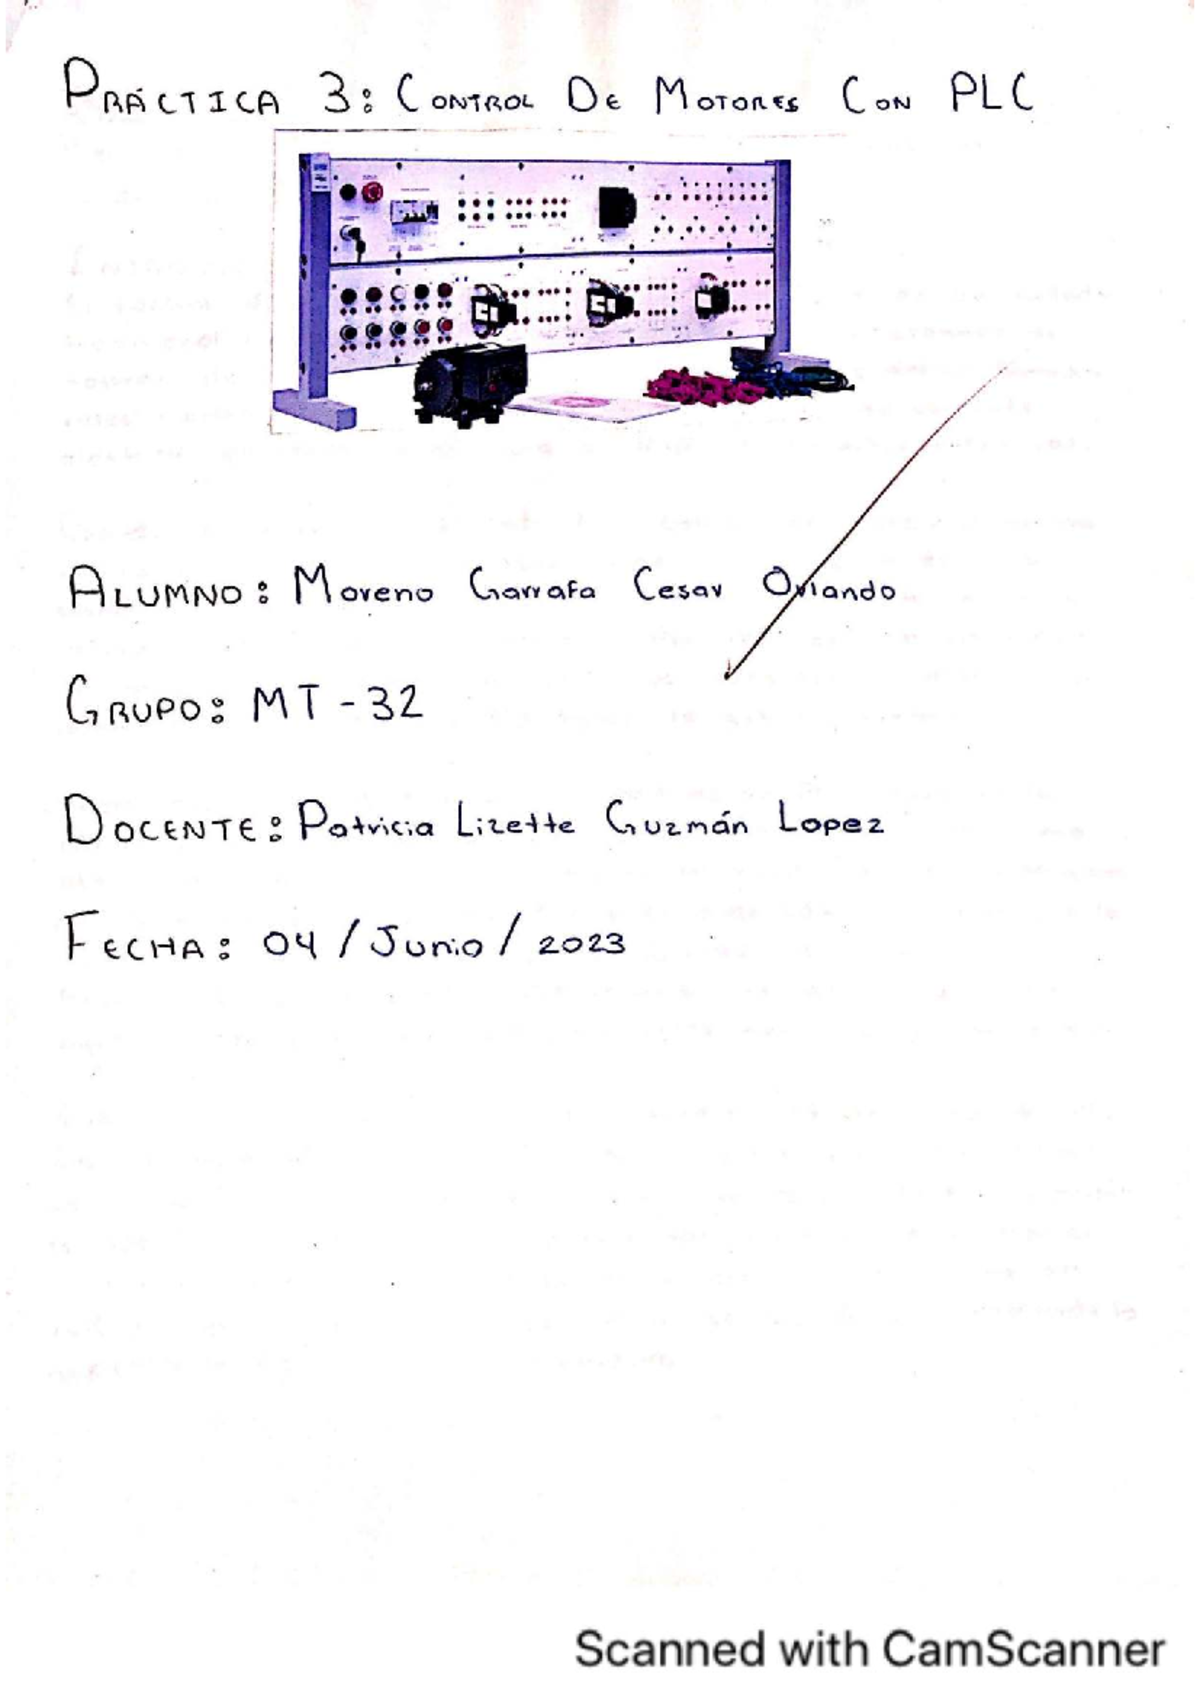 PRÁCTICA 3: CONTROL DE MOTORES CON PLC
ALUMNO: Moreno Garrafa Cesar Orlando
GRUPO: MT-32
DOCENTE: Patricia Lizette Guzmán Lopez
FECHA: 04/Junio/2023
Scanned with CamScanner